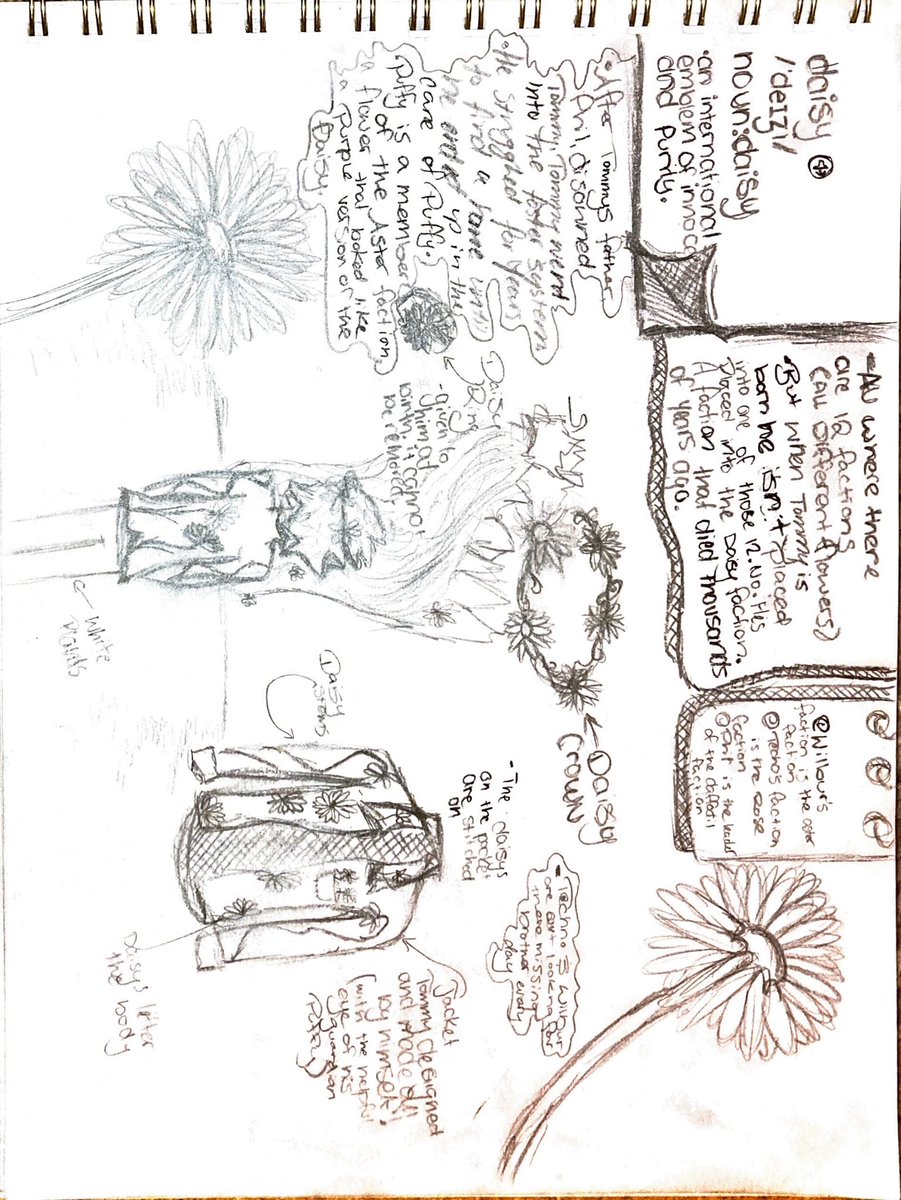 daisy
/'deIzi/
noun:daisy
•an international
emblem of innoc
and purity.
-AU where there
are 12 factions
(all different flowers)
•But when Tommy is
born he isn't placed
into one of those 12. No. He's
placed into the Daisy faction.
A faction that died thousands
of years ago.
@Wilbur's
faction is the aster
faction
@Techno's faction
is the rose
faction
@Phil is the leader
of the daffodil
faction
•After Tommys father,
Phil, disowned
Tommy, Tommy went
into the foster system
•He struggled for years
to find a home until
he ended up in the
care of Puffy.
Puffy is a member
of the Aster faction,
a flower that looked like
a purple version of the
Daisy.
Daisy
-given to
him at
birth, it cannot
be removed
Daisy
Crown
White
Pants
Daisy
- The daisys
on the pocket
are stitched
on
•Techno & Wilbur
are out looking for
there missing
brother every
day
Jacket
Tommy designed
and made all
by himself!
(with the helpful
eye of his
guardian
Puffy)
daisys litter
the body